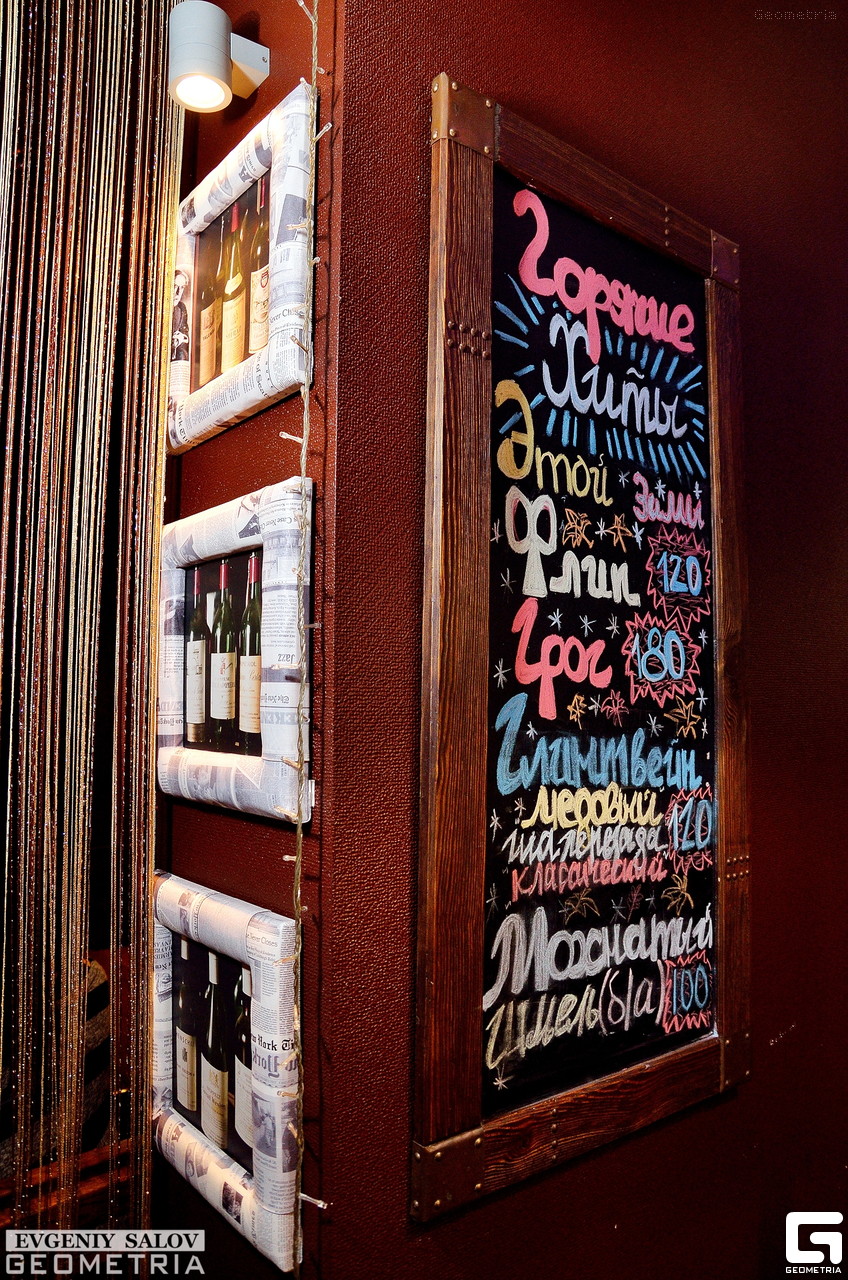 Geometria
Горячие
Хиты
Этой
Зимы
Флип 120
Грог 180
Глинтвейн
медовый 120
классический
Мохнатый
Шмель(б/а) 100
Never Closes
Jazz
New York
EVGENIY SALOV
GEOMETRIA
GEOMETRIA